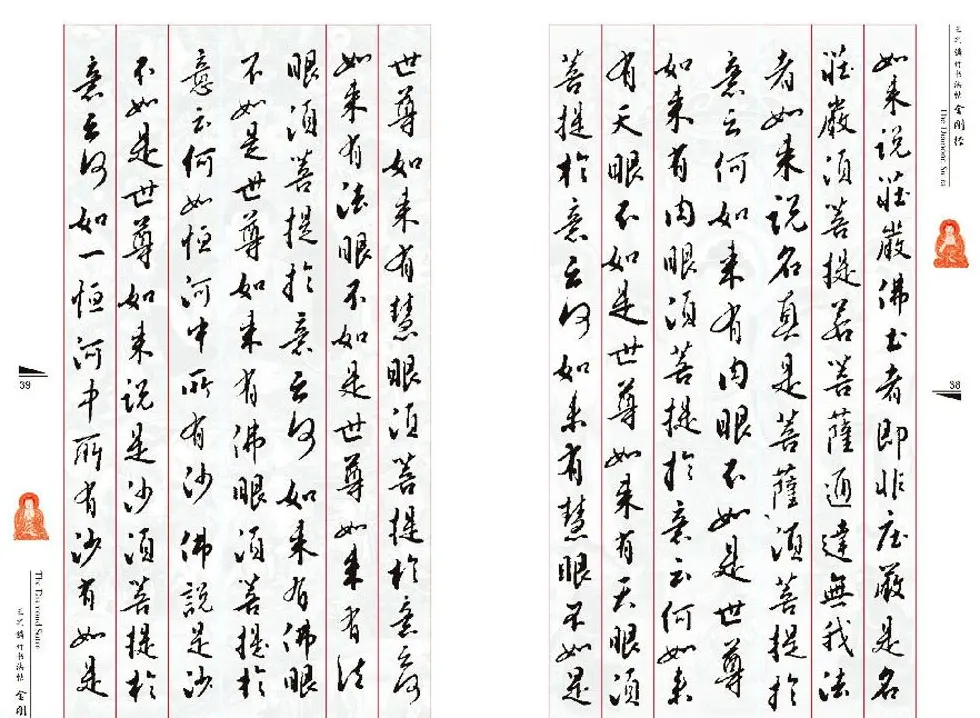 The Diamond Sutra
金刚经
38
如来说莊嚴佛土者即非庄嚴是名
莊嚴須菩提若菩薩通達無我法
者如来说名真是菩薩須菩提於
意云何如来有肉眼不如是世尊
如来有肉眼須菩提於意云何如来
有天眼不如是世尊如来有天眼須
菩提於意云何如来有慧眼不如是
世尊如来有慧眼須菩提於意云何
如来有法眼不如是世尊如来有法
眼須菩提於意云何如来有佛眼
不如是世尊如来有佛眼須菩提於
意云何如恒河中所有沙佛說是沙
不如是世尊如来说是沙須菩提於
意云何如一恒河中所有沙有如是
39
The Diamond Sutra
金刚